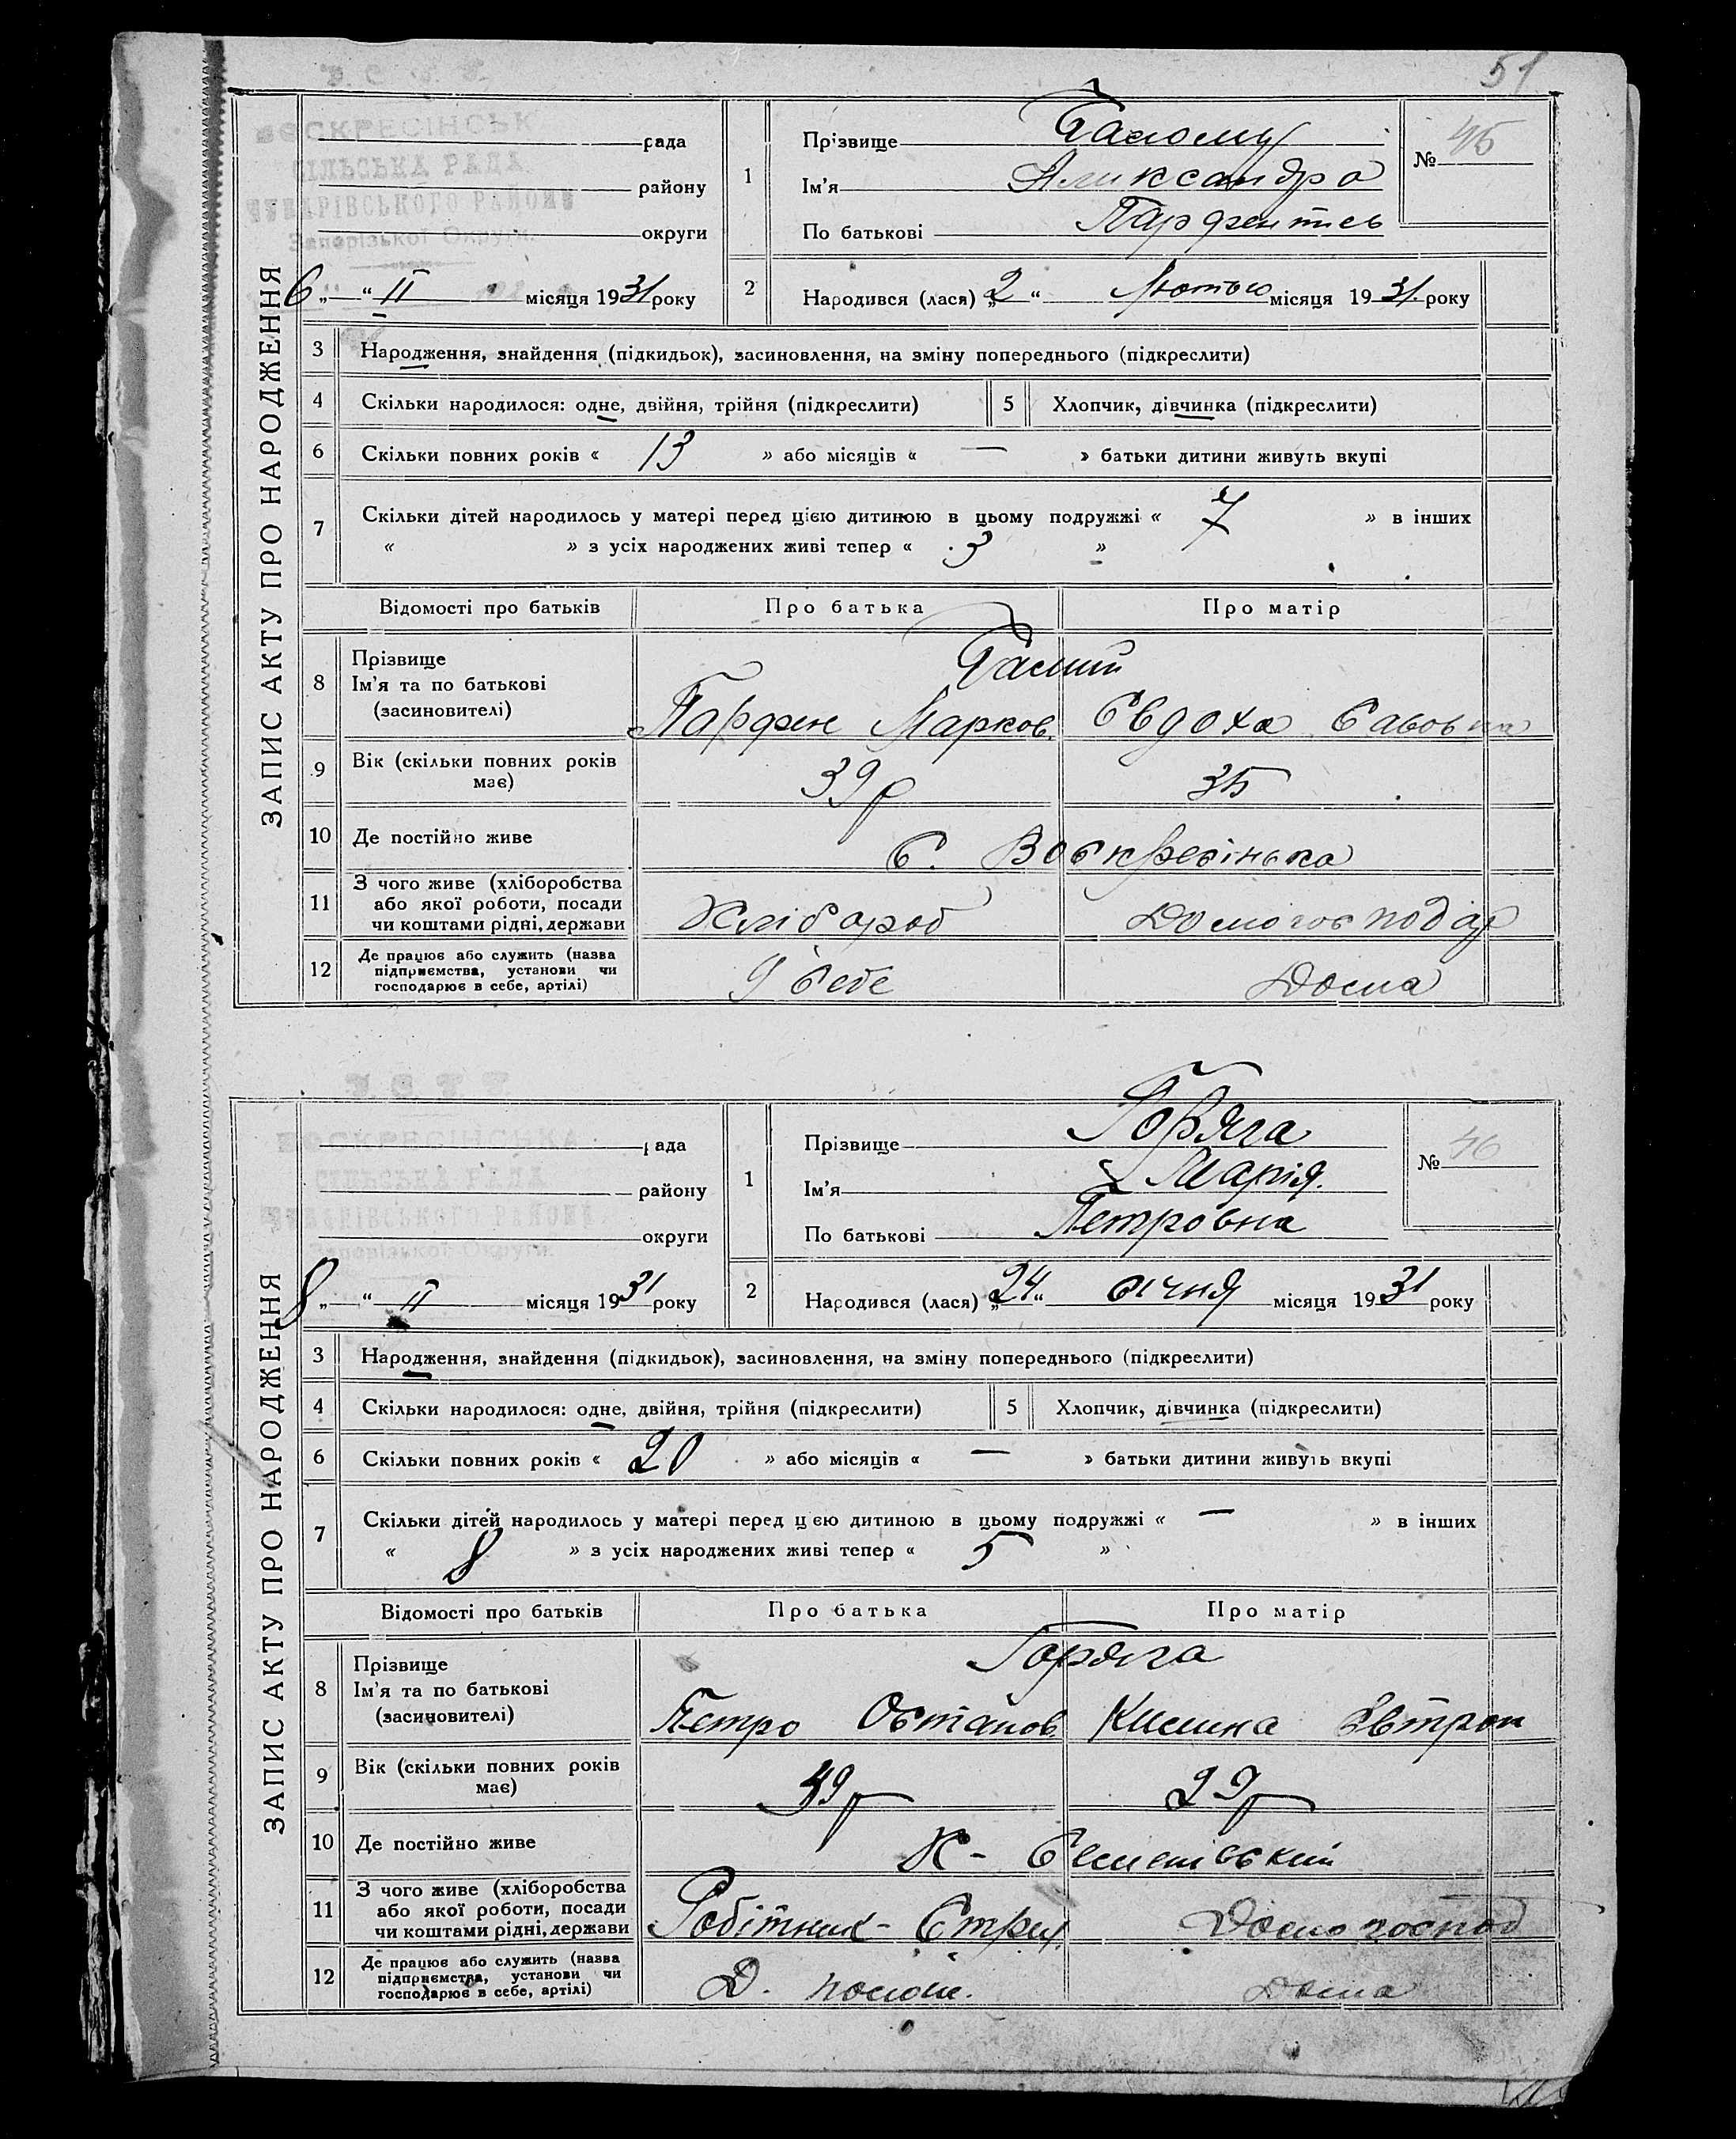 51
ЗАПИС АКТУ ПРО НАРОДЖЕННЯ
У. С. Р. Р.
ВОСКРЕСІНСЬК
СІЛЬСЬКА РАДА
ЧУБАРІВСЬКОГО РАЙОНУ
Запорізької Округи
рада
району
округи
6 „ “ II місяця 1931 року
1 Прізвище
Ім’я Александра
По батькові
№ 45
2 Народився (лася) „2“ Лютого місяця 1931 року
3 Народження, знайдення (підкидьок), засиновлення, на зміну попереднього (підкреслити)
4 Скільки народилося: одне, двійня, трійня (підкреслити) 5 Хлопчик, дівчинка (підкреслити)
6 Скільки повних років « 13 » або місяців « — » батьки дитини живуть вкупі
7 Скільки дітей народилось у матері перед цією дитиною в цьому подружжі « 7 » в інших
« » з усіх народжених живі тепер « 3 »
Відомості про батьків Про батька Про матір
8 Прізвище
Ім’я та по батькові
(засиновителі)
Парфен Марков. Євдоха Савовна
9 Вік (скільки повних років має) 39р 35
10 Де постійно живе С. Воскресінська
11 З чого живе (хліборобства
або якої роботи, посади
чи коштами рідні, держави
Хлібароб Домогосподар
12 Де працює або служить (назва
підприємства, установи чи
господарює в себе, артілі)
У себе Дома
ЗАПИС АКТУ ПРО НАРОДЖЕННЯ
У. С. Р. Р.
ВОСКРЕСІНСЬКА
СІЛЬСЬКА РАДА
ЧУБАРІВСЬКОГО РАЙОНУ
Запорізької Округи
рада
району
округи
8 „ “ II місяця 1931 року
1 Прізвище Горяга
Ім’я Марія.
По батькові Петровна
№ 46
2 Народився (лася) „24“ січня місяця 1931 року
3 Народження, знайдення (підкидьок), засиновлення, на зміну попереднього (підкреслити)
4 Скільки народилося: одне, двійня, трійня (підкреслити) 5 Хлопчик, дівчинка (підкреслити)
6 Скільки повних років « 20 » або місяців « — » батьки дитини живуть вкупі
7 Скільки дітей народилось у матері перед цією дитиною в цьому подружжі « — » в інших
« 8 » з усіх народжених живі тепер « 5 »
Відомості про батьків Про батька Про матір
8 Прізвище
Ім’я та по батькові
(засиновителі)
Горяга
Петро Остапов
9 Вік (скільки повних років має) 29р
10 Де постійно живе Х-
11 З чого живе (хліборобства
або якої роботи, посади
чи коштами рідні, держави
Робітник- Домогоспод
12 Де працює або служить (назва
підприємства, установи чи
господарює в себе, артілі)
Д. Дома